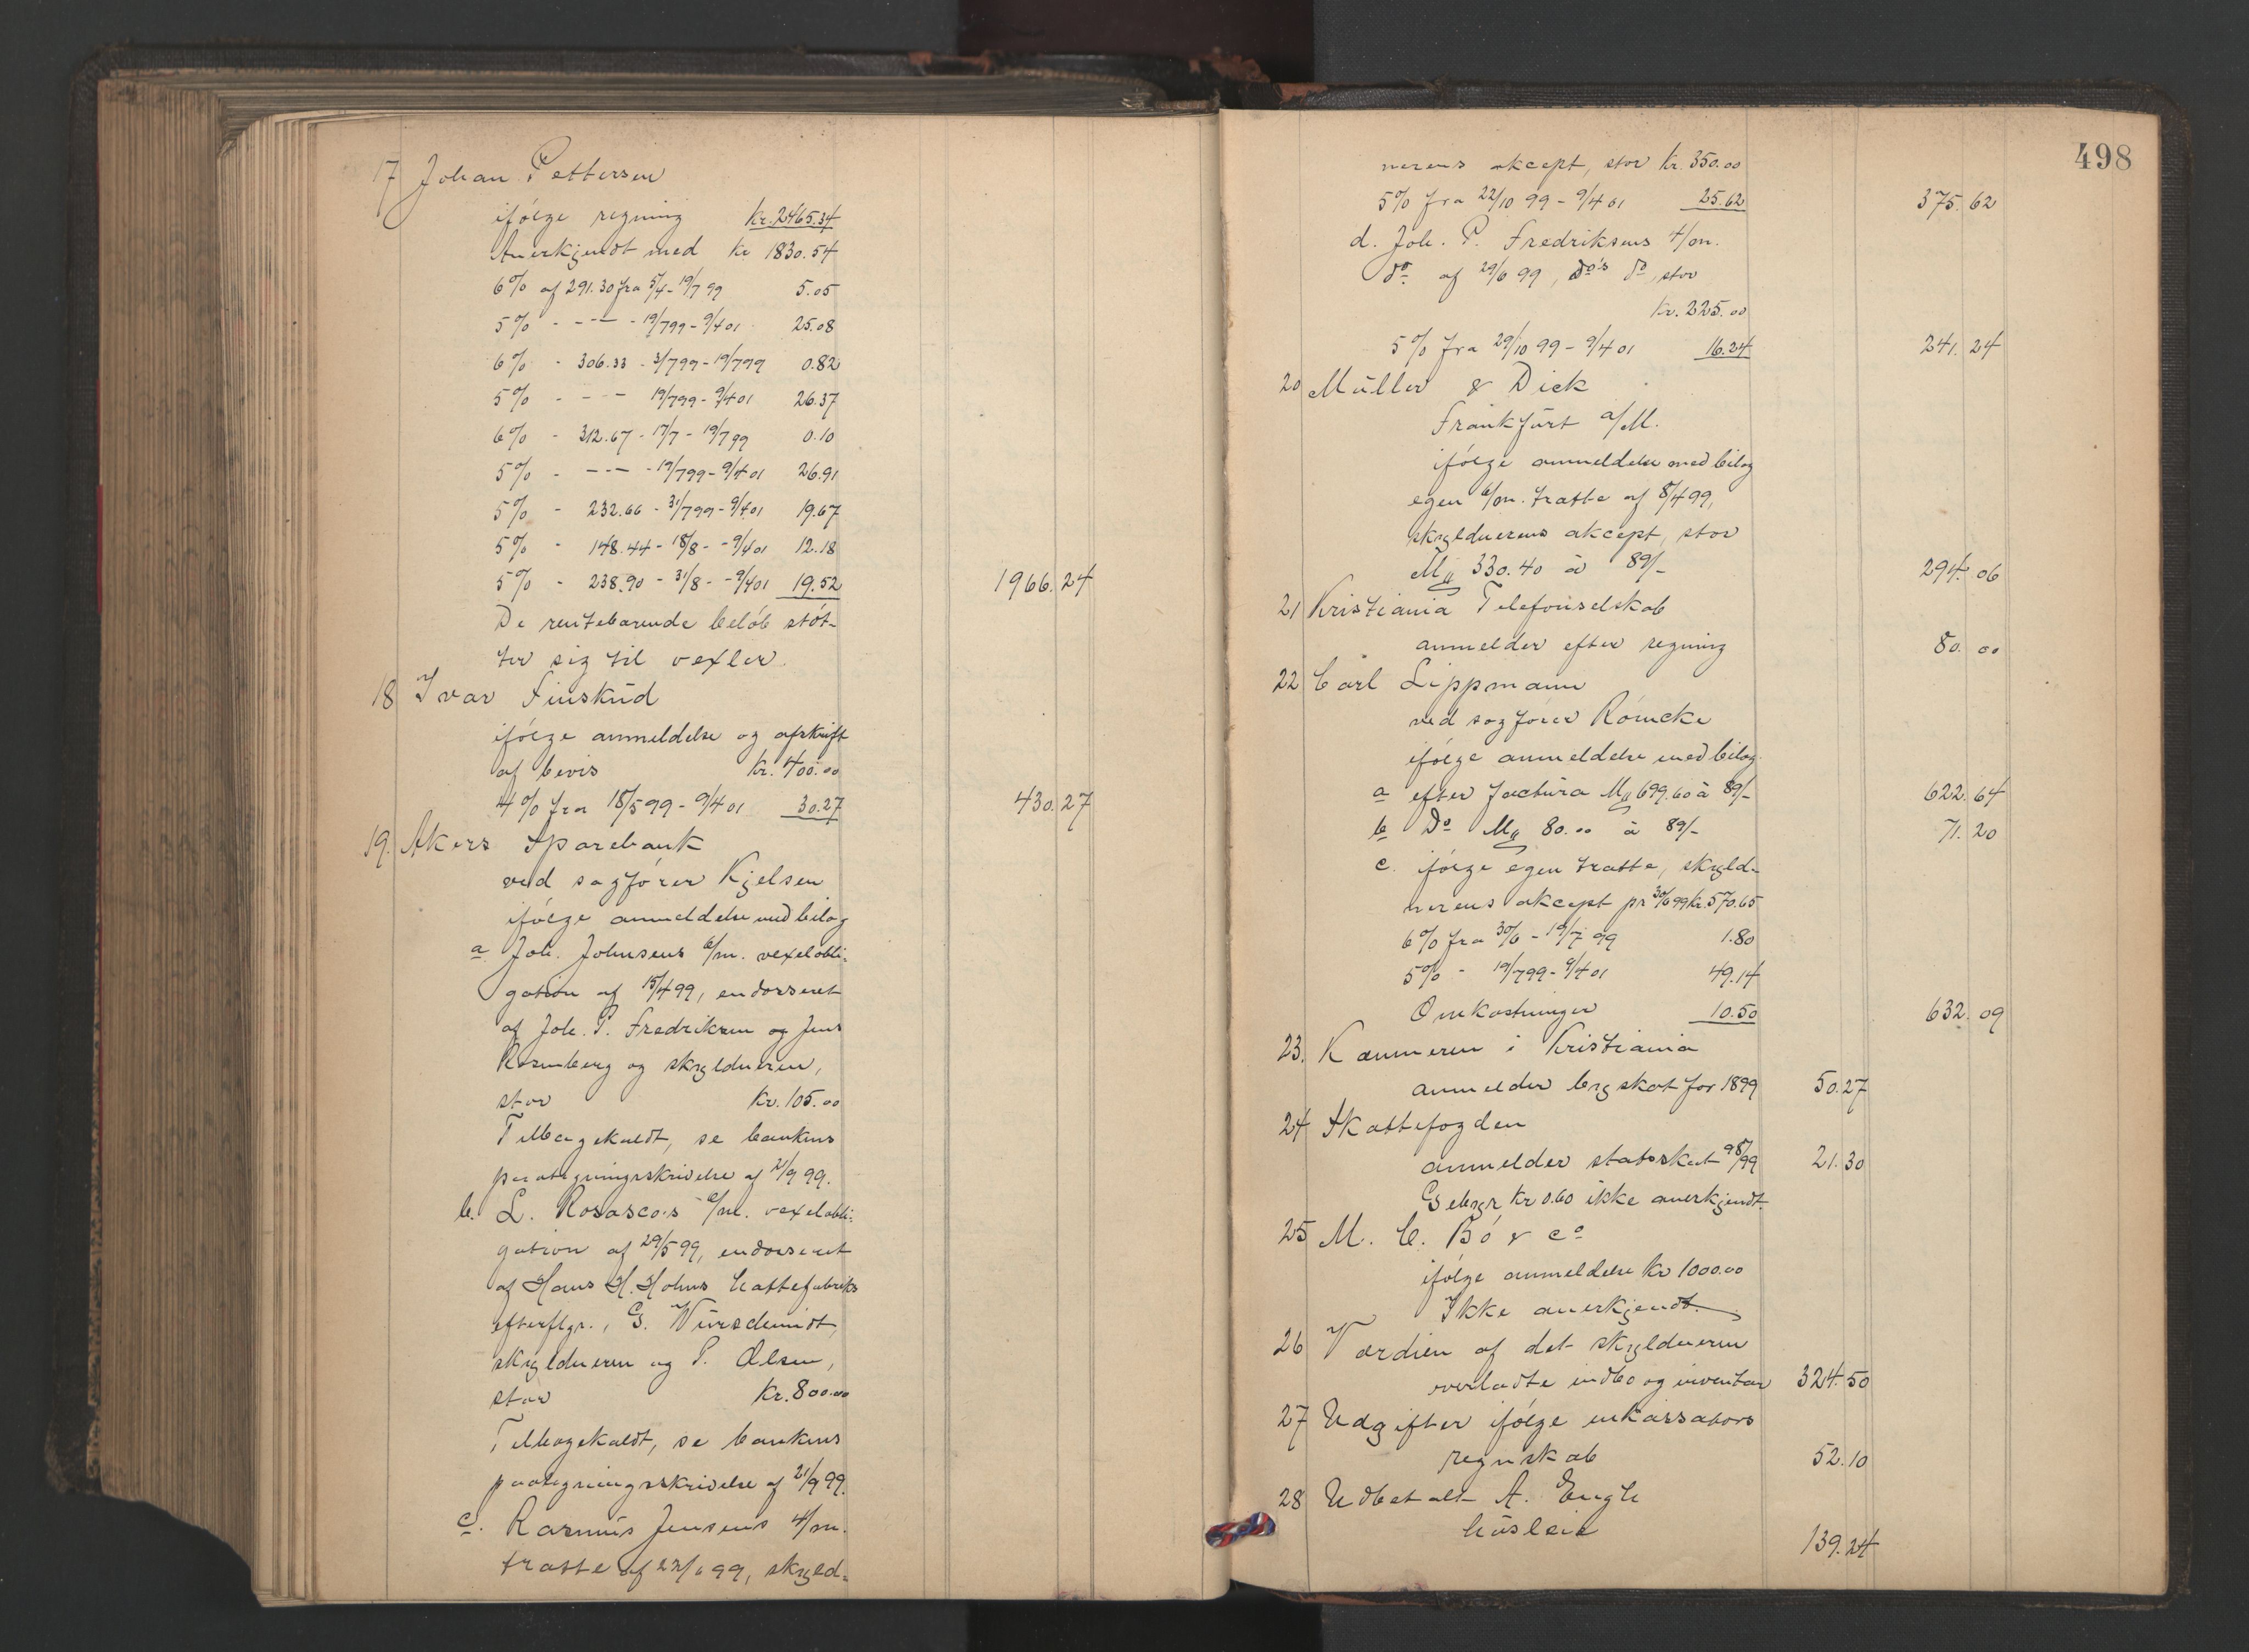 17 Johan Pettersen
ifølge regning Kr. 2465.34
Anerkjendt med Kr 1830.54
6% af 291.30 fra 5/4 - 19/7 99 5.05
5% - - - - 19/7 99 - 9/4 01 25.08
6% - 306.33 - 3/7 99 - 19/7 99 0.82
5% - - - 19/7 99 - 9/4 01 26.37
6% - 312.67 - 17/7 - 19/7 99 0.10
5% - - - - 19/7 99 - 9/4 01 26.91
5% - 232.66 - 31/7 99 - 9/4 01 19.67
5% - 148.44 - 18/8 - - 9/4 01 12.18
5% - 238.90 - 31/8 - - 9/4 01 19.52 1966.24
De rentebærende beløb støt-
ter sig til vexler.
18 Ivar Finskud
ifølge anmeldelse og afskrift
af bevis Kr. 400.00
4% fra 18/5 99 - 9/4 01 30.27 430.27
19. Akers Sparebank
ved sagfører Kjelsen
ifølge anmeldelse med bilag
a Joh. Johnsens 6/m. vexelobli-
gation af 15/4 99, endosseret
af Joh. P. Fredriksen og Jens
Rosenberg og skyldneren,
stor Kr. 105.00
Tilbagekaldt, se bankens
paategningsskrivelse af 21/9 99.
b. L. Rosasco's 6/m. vexelobli-
gation af 29/5 99, endosseret
af Hans H. Holms hattefabriks
efterflgr., G. Würschmidt,
skyldneren og P. Olsen,
stor Kr. 800.00
Tilbagekaldt, se bankens
paategningsskrivelse af 21/9 99.
c. Rasmus Jensens 4/m.
tratte af 22/6 99, skyld-
498
nerens akcept, stor Kr. 350.00
5% fra 22/10 99 - 9/4 01 25.62 375.62
d. Joh. P. Fredriksens 4/m.
do af 29/6 99, do's do, stor
Kr. 225.00
5% fra 29/10 99 - 9/4 01 16.24 241.24
20 Müller & Dick
Frankfurt a/M.
ifølge anmeldelse med bilag
egen 6/m. tratte af 8/4 99,
skyldnerens akcept, stor
M 330.40 à 89/- 294.06
21 Kristiania Telefonselskab
anmelder efter regning 80.00
22 Carl Lippmann
ved sagfører Römcke
ifølge anmeldelse med bilag
a efter factura M 699.60 à 89/- 622.64
b Do M 80.00 à 89/- 71.20
c. ifølge egen tratte, skyld-
nerens akcept pr 30/6 99 Kr. 570.65
6% fra 30/6 - 19/7 99 1.80
5% - 19/7 99 - 9/4 01 49.14
Omkostninger 10.50 632.09
23. Kæmneren i Kristiania
anmelder byskat for 1899 50.27
24 Skattefogden
anmelder statsskat 98/99 21.30
Gebyr Kr 0.60 ikke anerkjendt.
25 M. C. Bö & Co
ifølge anmeldelse Kr 1000.00
Ikke anerkjendt.
26 Værdien af det skyldneren
overladte indbo og inventar 324.50
27 Udgifter ifølge inkassators
regnskab 52.10
28 Udbetalt A. Engh
husleie 139.24